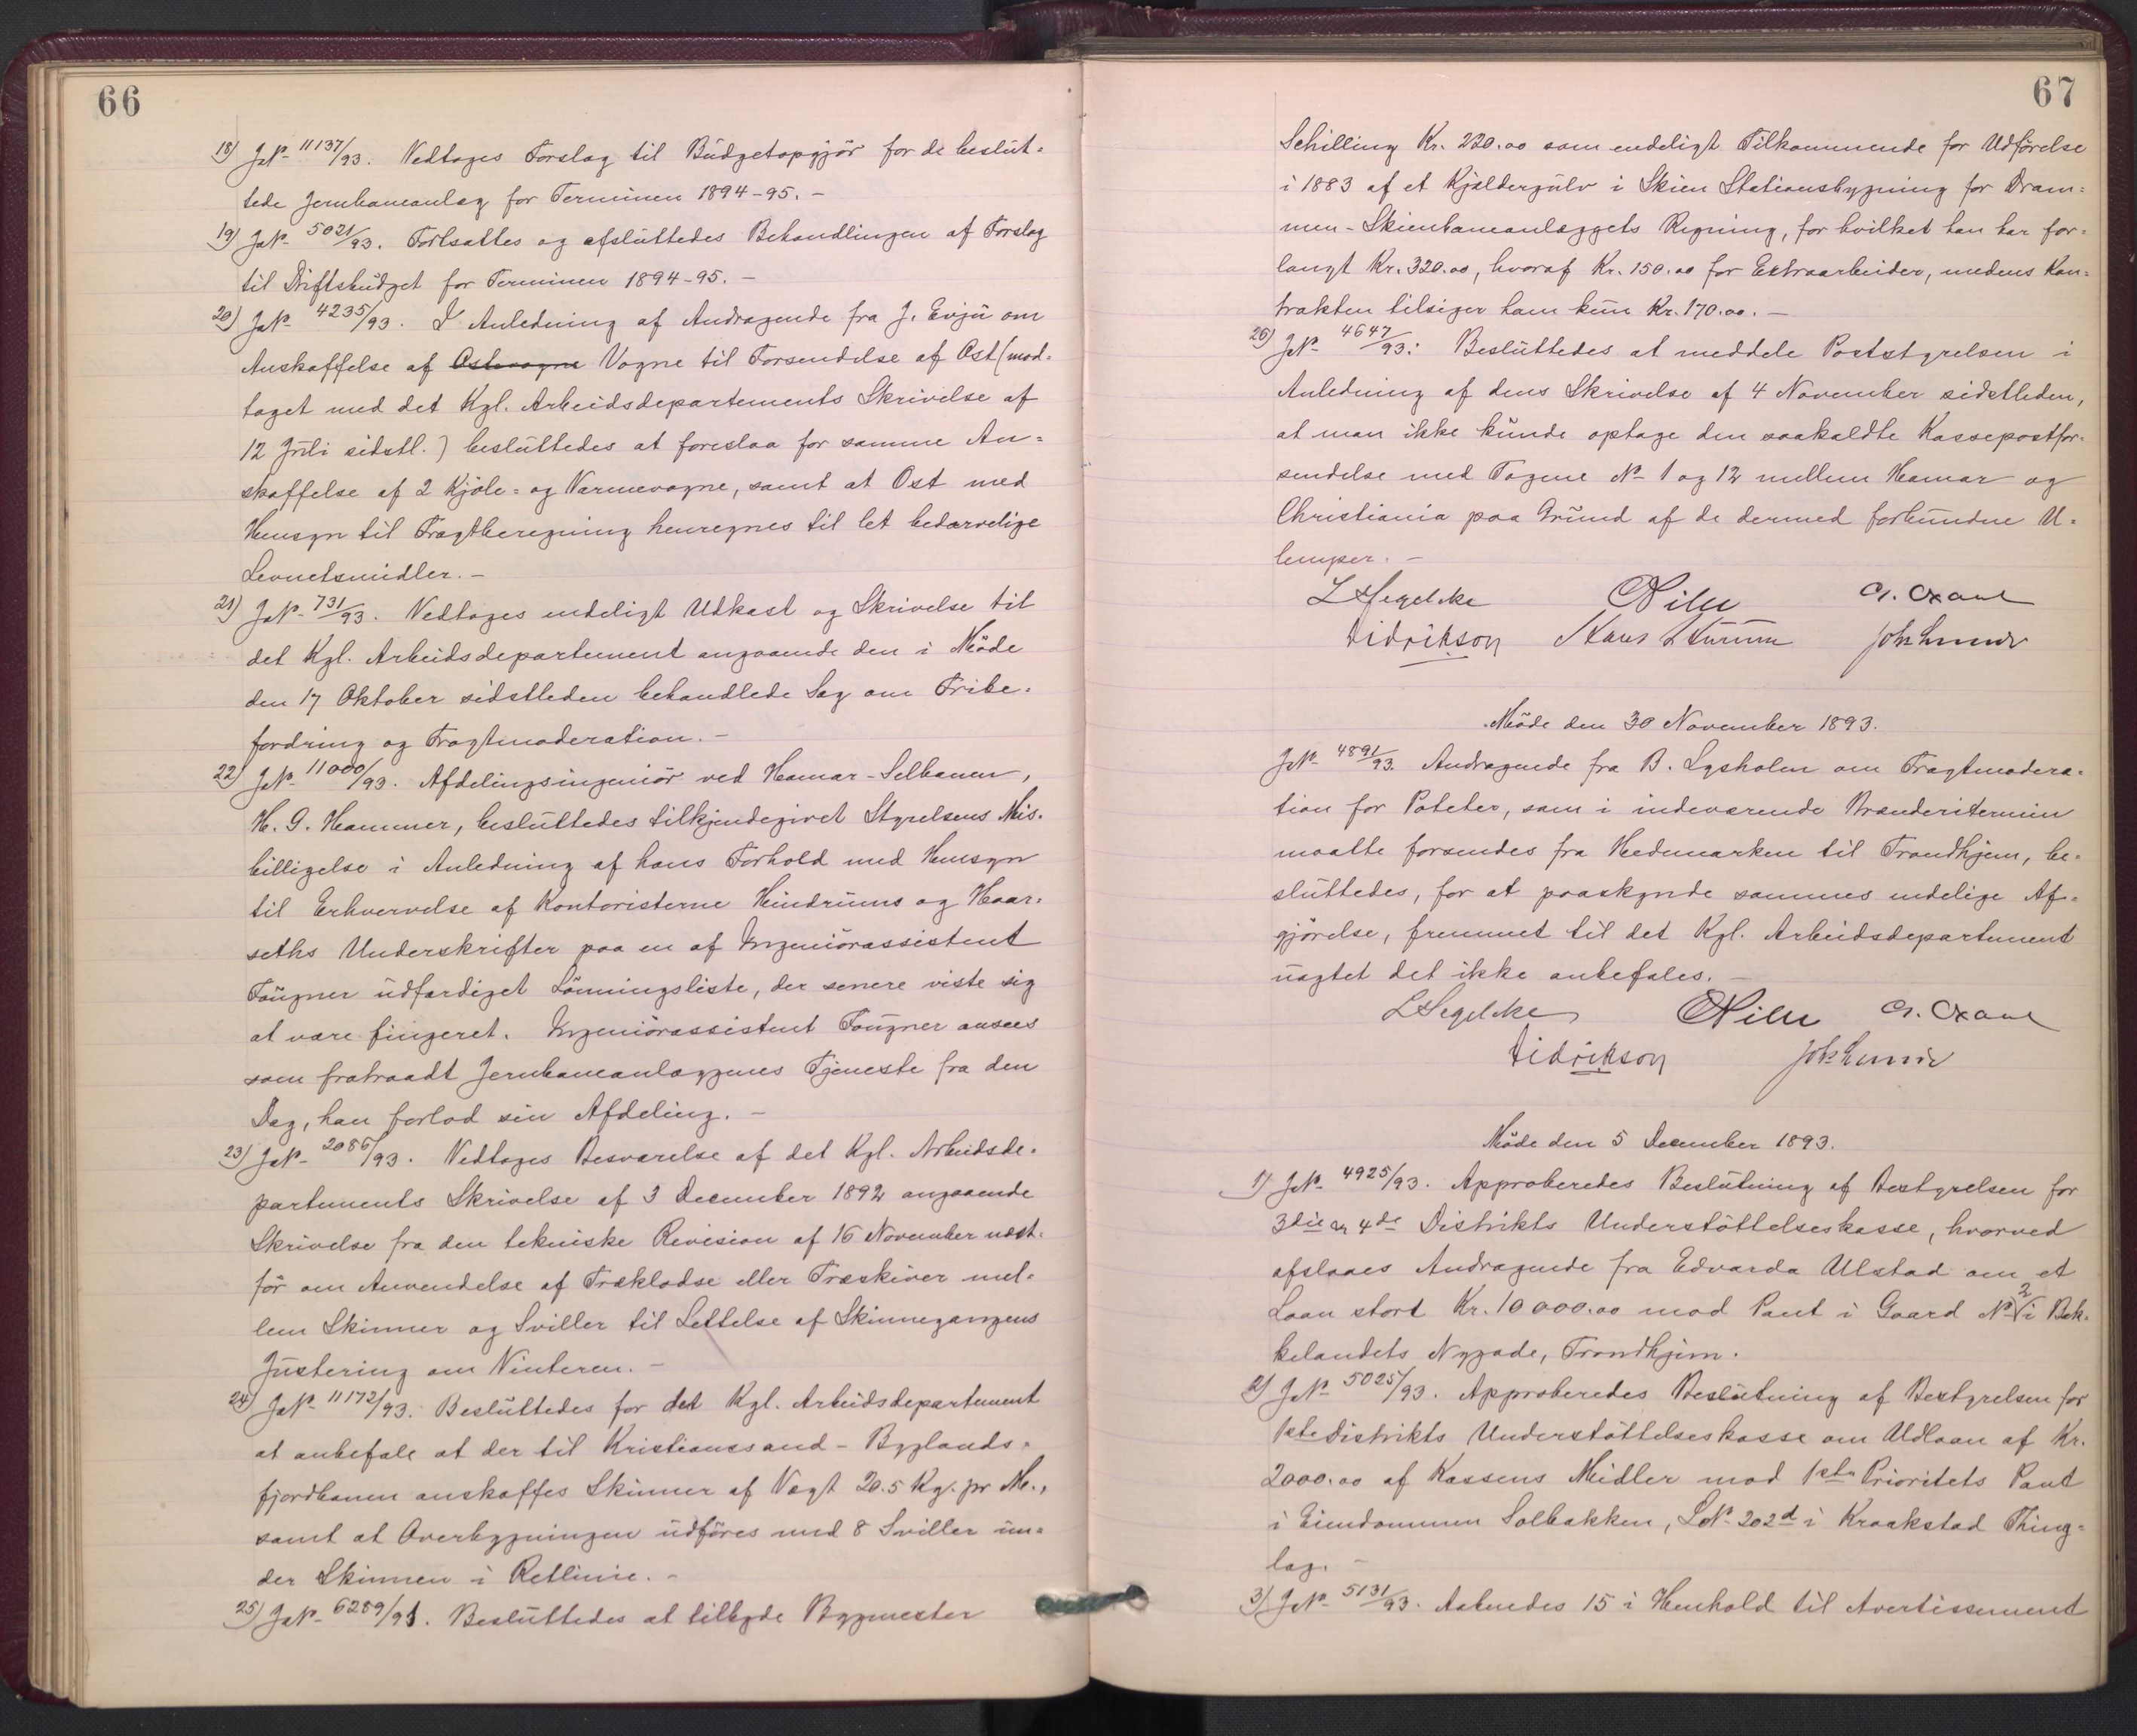 66
18) JN 11137/93. Vedtoges Forslag til Budgetopgjör for de beslut=
tede Jernbaneanlæg for Terminen 1894-95. –
19) JN 5021/93. Fortsattes og afsluttedes Behandlingen af Forslag
til Driftsbudget for Terminen 1894-95. –
20) JN 4235/93. I Anledning af Andragende fra J. Evju om
Anskaffelse af Ostevogne Vogne til Forsendelse af Ost (mod=
taget med det Kgl. Arbeidsdepartements Skrivelse af
12 Juli sidstl.) besluttedes at foreslaa for samme An=
skaffelse af 2 Kjöle= og Varmevogne, samt at Ost med
Hensyn til Fragtberegning henregnes til let bedærvelige
Levnetsmidler. –
21) JN 731/93. Vedtoges endeligt Udkast og Skrivelse til
det Kgl. Arbeidsdepartement angaaende den i Möde
den 17 Oktober sidstleden behandlede Sag om Fribe=
fordring og Fragtmoderation. –
22) JN 11000/93. Afdelingsingeniör ved Hamar-Selbanen,
H. G. Hammer, besluttedes tilkjendegivet Styrelsens Mis=
billigelse i Anledning af hans Forhold med Hensyn
til Erhvervelse af Kontoristerne Hindrums og Haar=
seths Underskrifter paa en af Ingeniörassistent
Fougner udfærdiget Lönningsliste, der senere viste sig
at være fingeret. Ingeniörassistent Fougner ansees
som fratraadt Jernbaneanlæggenes Tjeneste fra den
Dag, han forlod sin Afdeling. –
23) JN 2086/93. Vedtoges Besvarelse af det Kgl. Arbeidsde=
partements Skrivelse af 3 December 1892 angaaende
Skrivelse fra den tekniske Revision af 16 November næst=
för om Anvendelse af Træklodse eller Træskiver mel=
lem Skinner og Sviller til Lettelse af Skinnegangens
Justering om Vinteren. –
24) JN 11172/93. Besluttedes for det Kgl. Arbeidsdepartement
at anbefale at der til Kristianssand-Byglands=
fjordbanen anskaffes Skinner af Vægt 20.5 Kg. pr M.,
samt at Overbygningen udföres med 8 Sviller un=
der Skinnen i Retlinie. –
25) JN 6289/91. Besluttedes at tilbyde Bygmester
67
Schilling Kr. 220.00 som endeligt Tilkommende for Udförelse
i 1883 af et Kjældergulv i Skien Stationsbygning for Dram=
men-Skienbaneanlæggets Regning, for hvilket han har for=
langt Kr. 320.00, hvoraf Kr. 150.00 for Extraarbeider, medens Kon=
trakten tilsiger ham kun Kr. 170.00. –
26) JN 4647/93: Besluttedes at meddele Poststyrelsen i
Anledning af dens Skrivelse af 4 November sidstleden,
at man ikke kunde optage den saakaldte Kassepostfor=
sendelse med Togene No 1 og 12 mellem Hamar og
Christiania paa Grund af de dermed forbundne U=
lemper. –
L Segelcke   Pihl   G. Oxaal
Didrikson   Klaus Sturum   Joh Lunde
Möde den 30 November 1893.
JN 4891/93. Andragende fra B. Lysholm om Fragtmodera=
tion for Poteter, som i indeværende Brænderitermin
maatte forsendes fra Hedemarken til Trondhjem, be=
sluttedes, for at paaskynde sammes endelige Af=
gjörelse, fremmet til det Kgl. Arbeidsdepartement
uagtet det ikke anbefales. –
L Segelcke   Pihl   G. Oxaal
Didrikson   Joh Lunde
Möde den 5 December 1893.
1) JN 4925/93. Approberedes Beslutning af Bestyrelsen for
3die og 4de Distrikts Understöttelseskasse, hvorved
afslaaes Andragende fra Edvarda Ulstad om et
Laan stort Kr. 10000.00 mod Pant i Gaard No 2 i Bak=
kelandets Nygade, Trondhjem.
2) JN 5025/93. Approberedes Beslutning af Bestyrelsen for
1ste Distrikts Understöttelseskasse om Udlaan af Kr.
2000.00 af Kassens Midler mod 1ste Prioritets Pant
i Eiendommen Solbakken, LN 202d i Kraakstad Thing=
lag. –
3) JN 5131/93. Aabnedes 15 i Henhold til Avertissement